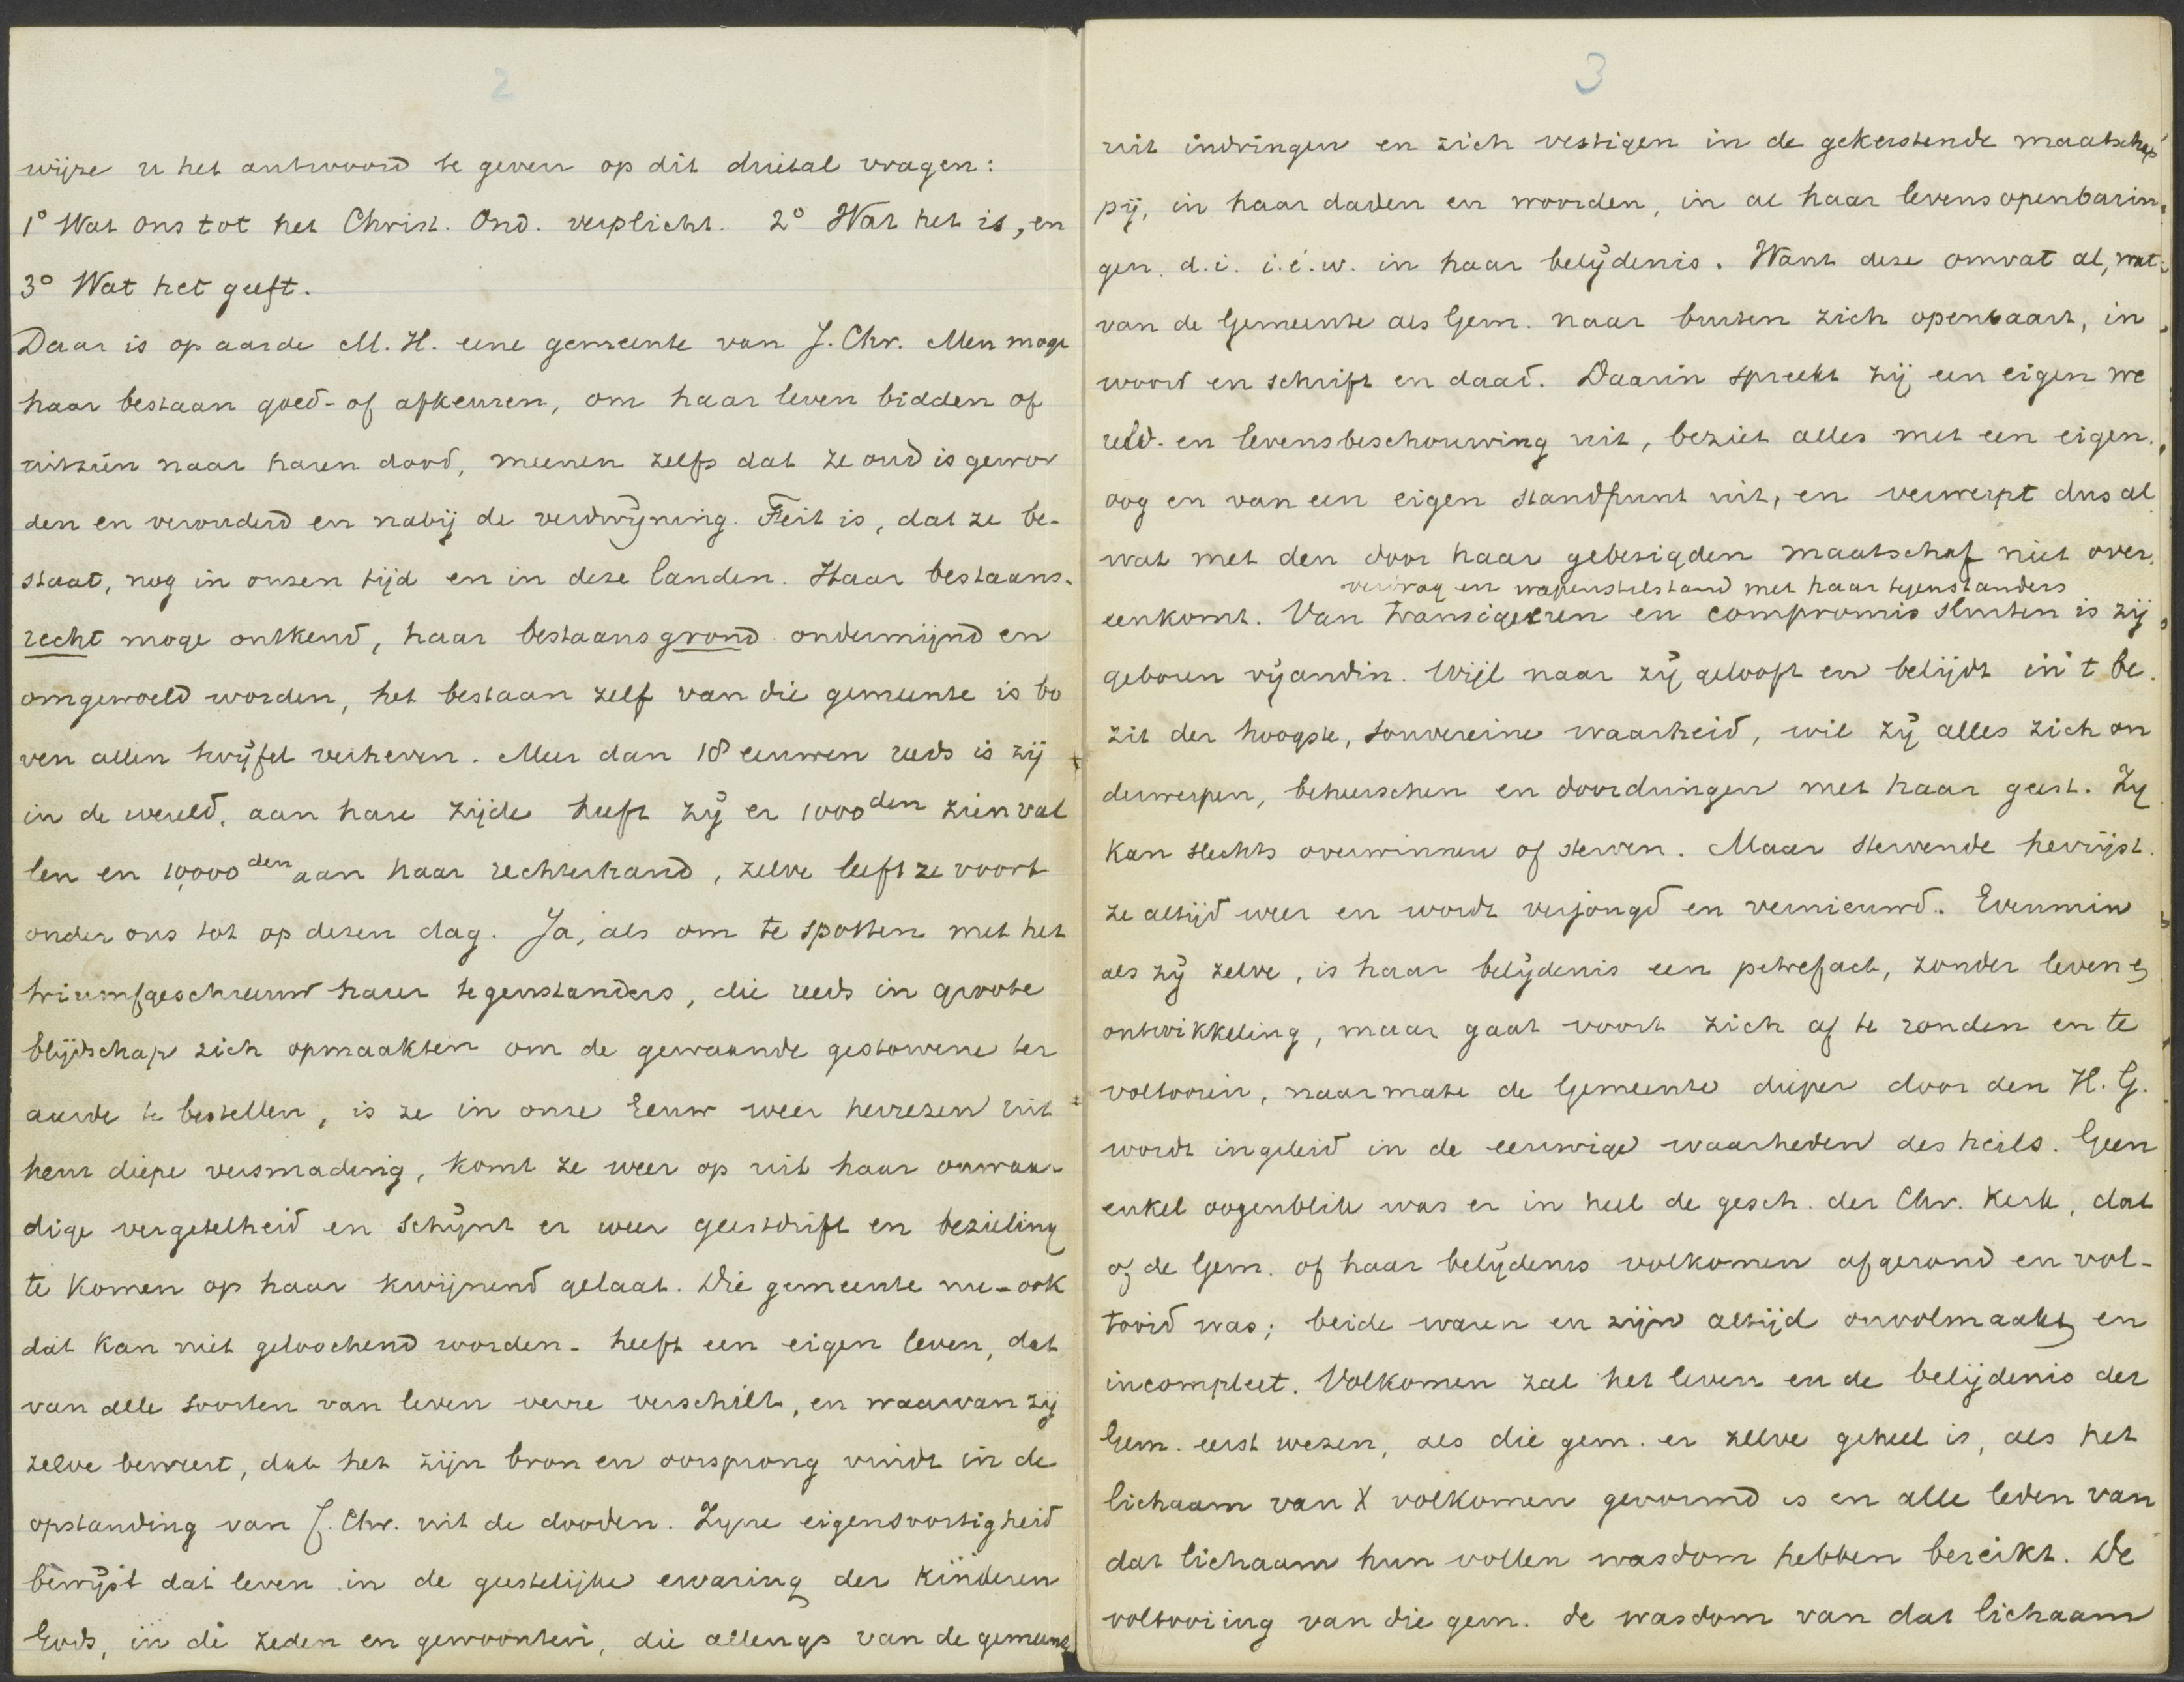 2
wijze u het antwoord te geven op dit drietal vragen:
1° Wat ons tot het Christ. Ond. verplicht. 2° Wat het is, en
3° Wat het geeft.
Daar is op aarde M. H. eene gemeente van J. Chr. Men moge
haar bestaan goed- of afkeuren, om haar leven bidden of
uitzien naar haren dood, meenen zelfs dat ze oud is gewor
den en verouderd en nabij de verdwijning. Feit is, dat ze be-
staat, nog in onzen tijd en in deze landen. Haar bestaans-
recht moge ontkend, haar bestaansgrond ondermijnd en
omgewoeld worden, het bestaan zelf van die gemeente is bo
ven allen twijfel verheven. Meer dan 18 eeuwen reeds is zij
in de wereld, aan hare zijde heeft zij er 1000den zien val
len en 10,000den aan haar rechterhand, zelve leeft ze voort
onder ons tot op dezen dag. Ja, als om te spotten met het
triumfgeschreeuw harer tegenstanders, die reeds in groote
blijdschap zich opmaakten om de gewaande gestorvene ter
aarde te bestellen, is ze in onze Eeuw weer herrezen uit
heur diepe versmading, komt ze weer op uit haar onwaar-
dige vergetelheid en schijnt er weer geestdrift en bezieling
te komen op haar kwijnend gelaat. Die gemeente nu - ook
dat kan niet geloochend worden - heeft een eigen leven, dat
van alle soorten van leven verre verschilt, en waarvan zij
zelve beweert, dat het zijn bron en oorsprong vindt in de
opstanding van J. Chr. uit de dooden. Zijne eigensoortigheid
bewijst dat leven in de geestelijke ervaring der kinderen
Gods, in de zeden en gewoonten, die allengs van de gemeente
3
uit indringen en zich vestigen in de gekerstende maatschap
pij, in haar daden en woorden, in al haar levensopenbarin-
gen. d.i. i.é.w. in haar belijdenis. Want deze omvat al, wat
van de Gemeente als Gem. naar buiten zich openbaart, in
woord en schrift en daad. Daarin spreekt zij een eigen we
reld- en levensbeschouwing uit, beziet alles met een eigen
oog en van een eigen standpunt uit, en verwerpt dus al
wat met den door haar gebezigden maatschaf niet over-
verdrag en wapenstilstand met haar tegenstanders
eenkomt. Van transigeeren en compromis sluiten is zij
geboren vijandin. Wijl naar zij gelooft en belijdt in 't be-
zit der hoogste, souvereine waarheid, wil zij alles zich on
derwerpen, beheerschen en doordringen met haar geest. Zij
kan slechts overwinnen of sterven. Maar stervende herrijst
ze altijd weer en wordt verjongd en vernieuwd. Evenmin
als zij zelve, is haar belijdenis een petrefact, zonder leven &
ontwikkeling, maar gaat voort zich af te ronden en te
voltooien, naarmate de Gemeente dieper door den H. G.
wordt ingeleid in de eeuwige waarheden des heils. Geen
enkel oogenblik was er in heel de gesch. der Chr. Kerk, dat
of de Gem. of haar belijdenis volkomen afgerond en vol-
tooid was; beide waren en zijn altijd onvolmaakt en
incompleet. Volkomen zal het leven en de belijdenis der
Gem. eerst wezen, als die gem. er zelve geheel is, als het
lichaam van X volkomen gevormd is en alle leden van
dat lichaam hun vollen wasdom hebben bereikt. De
voltooiing van die gem. de wasdom van dat lichaam